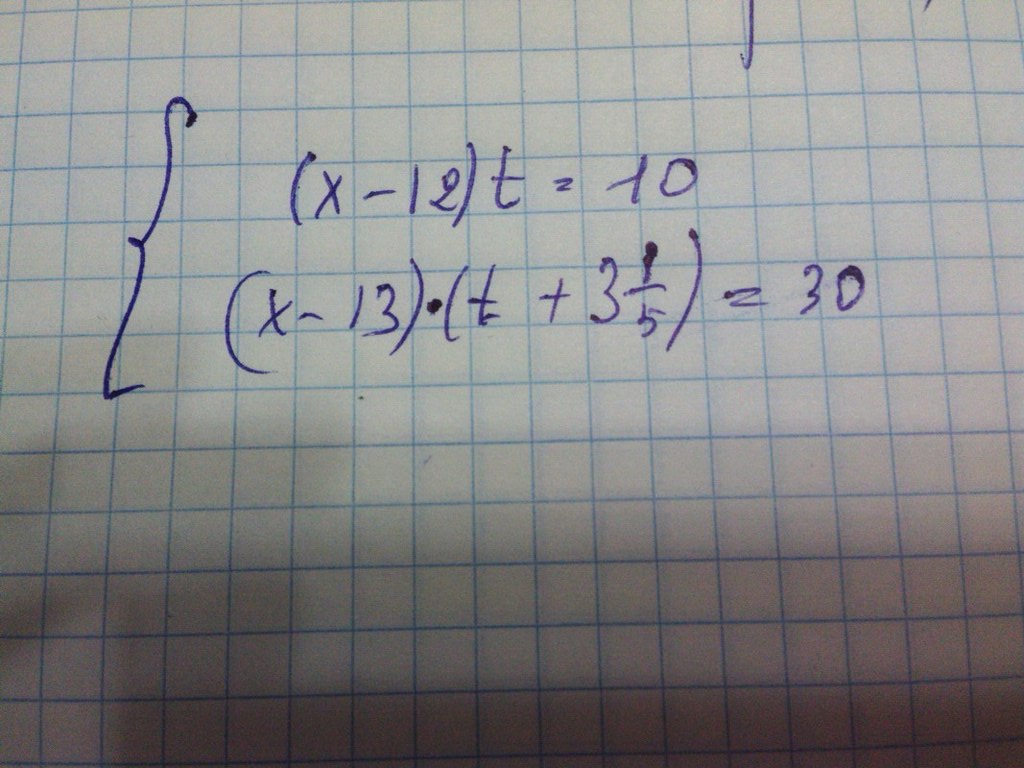 (x-12)t = 10
(x-13)·(t + 3 1/5) = 30